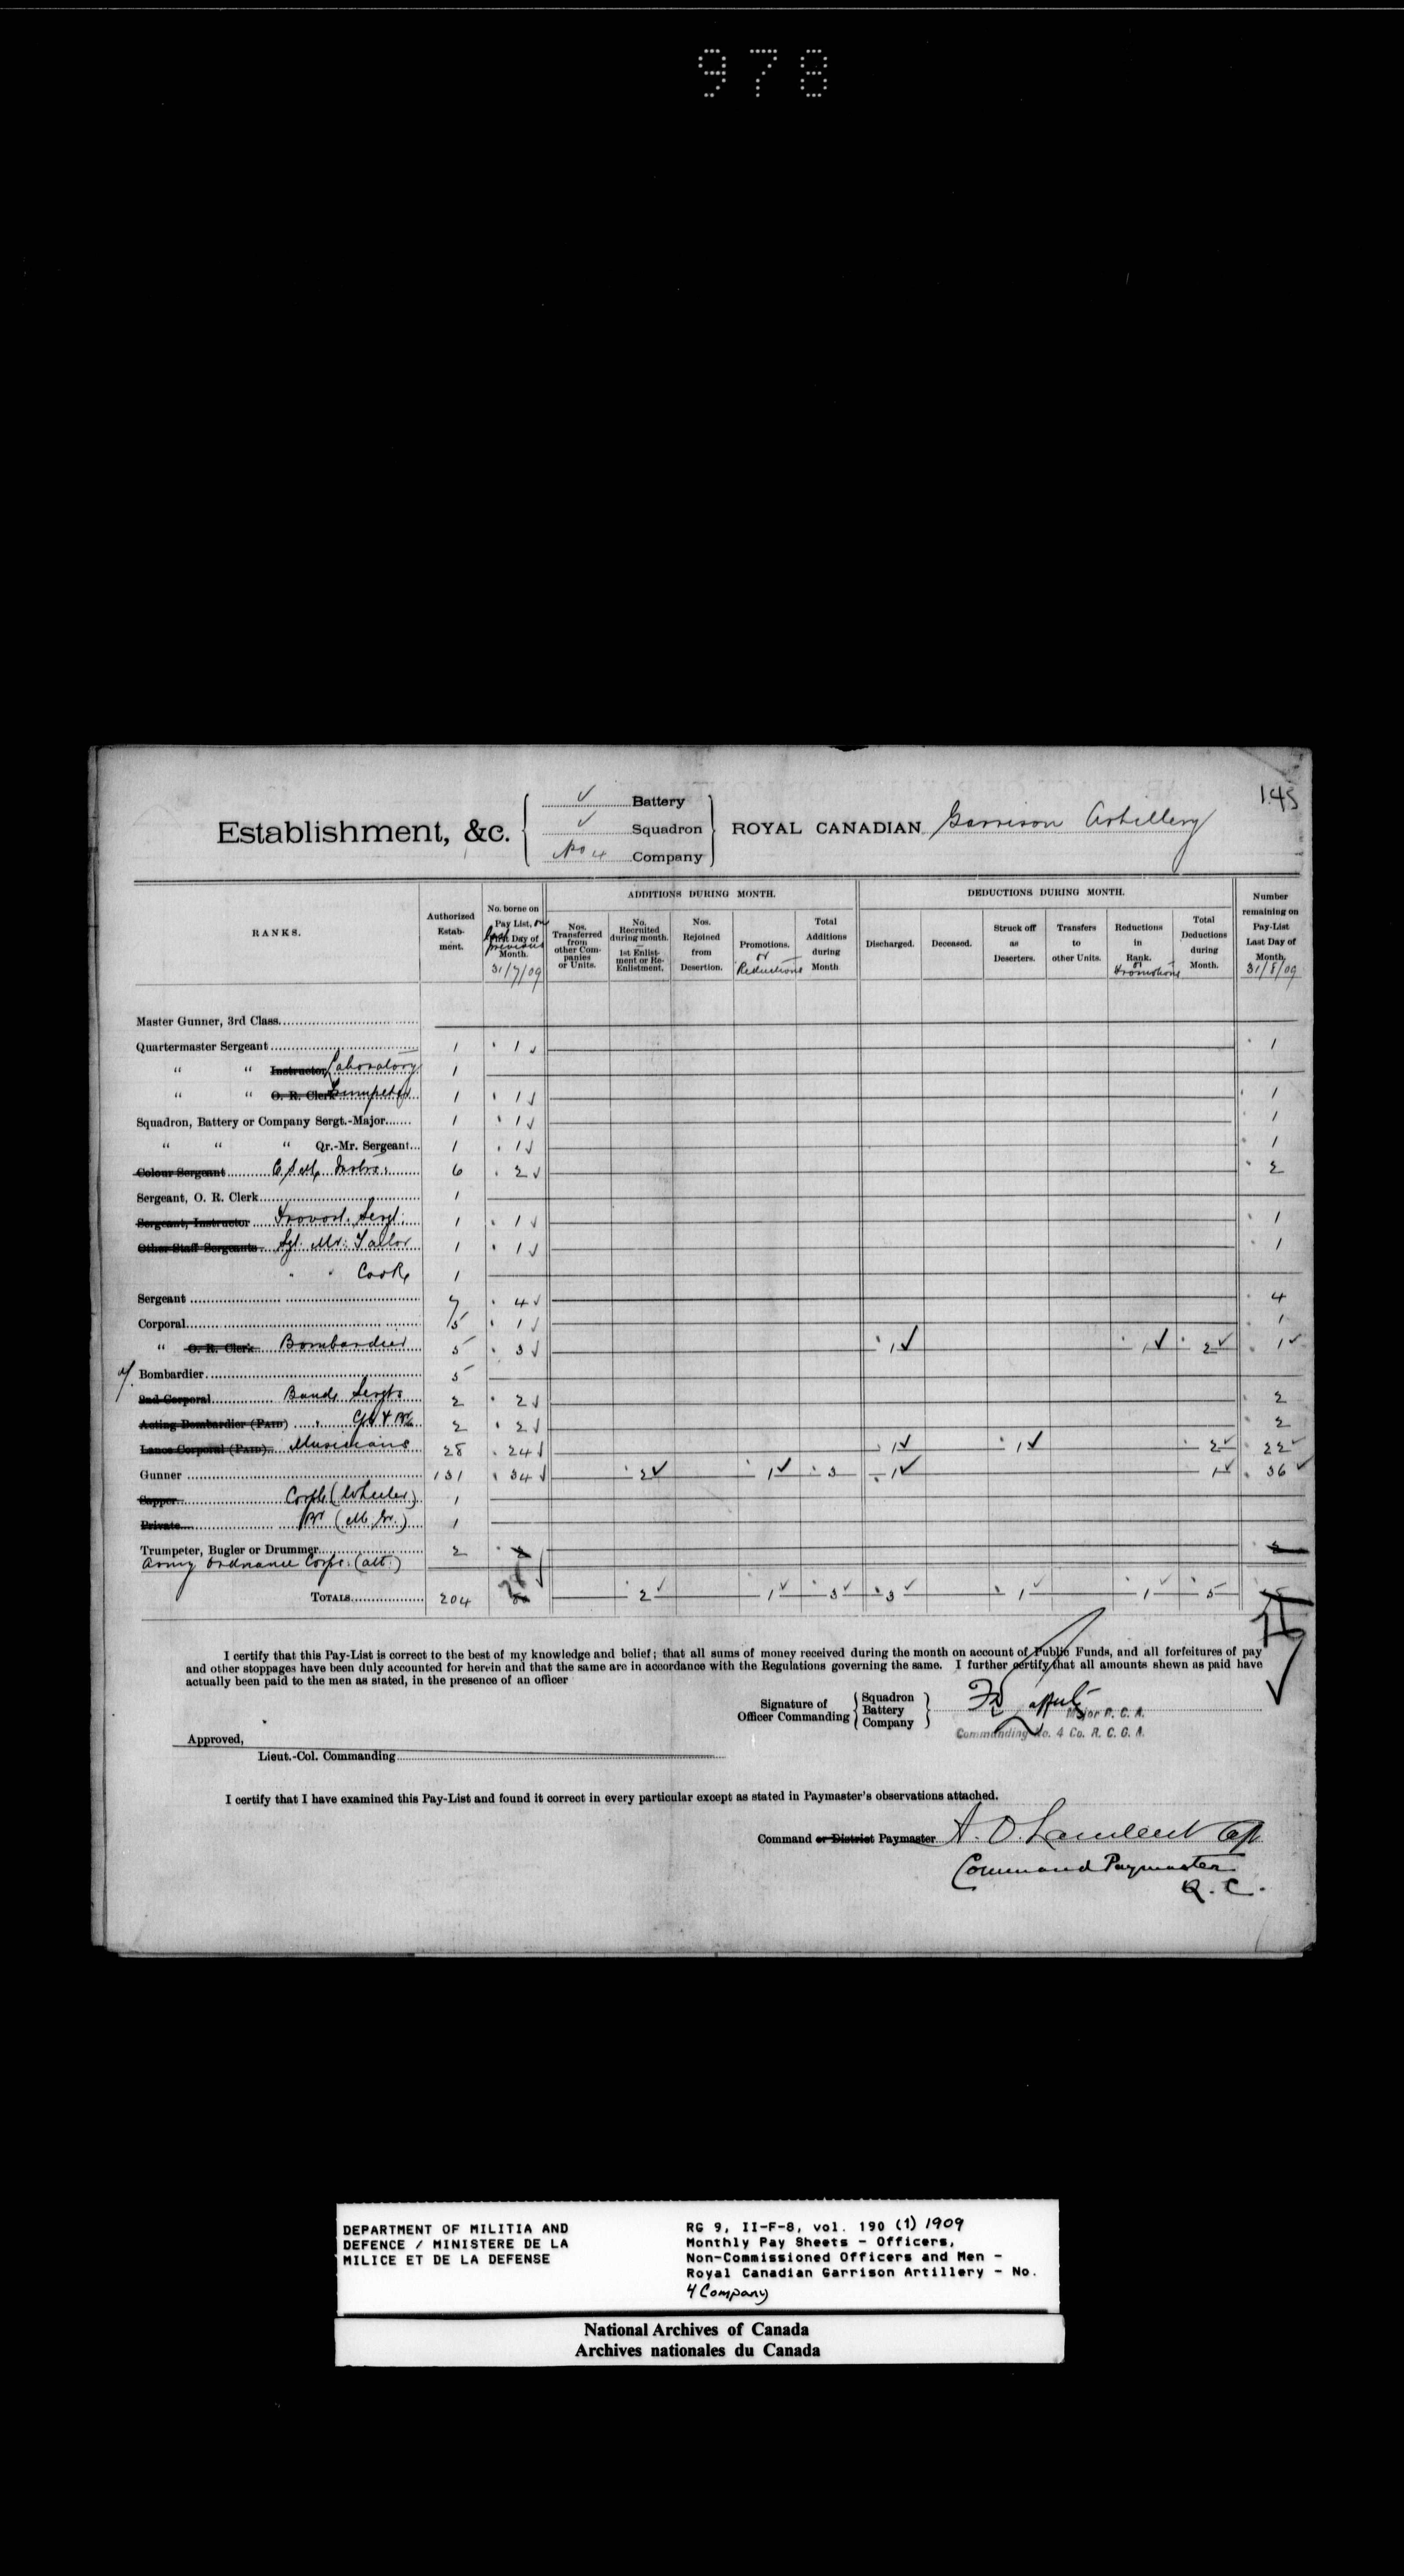 978
145
Establishment, &c.
✓ Battery
✓ Squadron
No 4 Company
ROYAL CANADIAN Garrison Artillery
RANKS.
Authorized Estab- ment.
No. borne on Pay List, on last First Day of previous Month. 31/7/09
ADDITIONS DURING MONTH.
Nos. Transferred from other Com- panies or Units.
No. Recruited during month. — 1st Enlist- ment or Re- Enlistment.
Nos. Rejoined from Desertion.
Promotions. or Reductions
Total Additions during Month
DEDUCTIONS DURING MONTH.
Discharged.
Deceased.
Struck off as Deserters.
Transfers to other Units.
Reductions in Rank. or Promotions
Total Deductions during Month.
Number remaining on Pay-List Last Day of Month, 31/8/09
Master Gunner, 3rd Class
Quartermaster Sergeant 1 1 ✓ 1
" " Instructor Laboratory 1
" " O. R. Clerk Trumpeter 1 1 ✓ 1
Squadron, Battery or Company Sergt.-Major 1 1 ✓ 1
" " " Qr.-Mr. Sergeant 1 1 ✓ 1
Colour Sergeant C.S.M. Instrs. 6 2 ✓ 2
Sergeant, O. R. Clerk 1
Sergeant, Instructor Provost Sergt. 1 1 ✓ 1
Other Staff Sergeants Sgt. Mr. Tailor 1 1 ✓ 1
" " Cook 1
Sergeant 7 4 ✓ 4
Corporal 5 1 ✓ 1
" O. R. Clerk Bombardier 5 3 ✓ 1 ✓ 1 ✓ 2 ✓ 1 ✓
Bombardier 5
2nd Corporal Band Sergts 2 2 ✓ 2
Acting Bombardier (Paid) " 2 2 ✓ 2
Lance Corporal (Paid) Musicians 28 24 ✓ 1 ✓ 1 ✓ 2 ✓ 22 ✓
Gunner 131 34 ✓ 2 ✓ 1 ✓ 3 1 ✓ 1 ✓ 36 ✓
Sapper Corpl. (Wheeler) 1
Private 1
Trumpeter, Bugler or Drummer 2
Army Ordnance Corps. (att.)
TOTALS 204 2 ✓ 1 ✓ 3 ✓ 3 ✓ 1 ✓ 1 ✓ 5
I certify that this Pay-List is correct to the best of my knowledge and belief; that all sums of money received during the month on account of Public Funds, and all forfeitures of pay
and other stoppages have been duly accounted for herein and that the same are in accordance with the Regulations governing the same. I further certify that all amounts shewn as paid have
actually been paid to the men as stated, in the presence of an officer
Signature of Officer Commanding
Squadron
Battery
Company
Major R. C. A.
Commanding No. 4 Co. R. C. G. A.
Approved,
Lieut.-Col. Commanding
I certify that I have examined this Pay-List and found it correct in every particular except as stated in Paymaster's observations attached.
Command or District Paymaster A. O. Lambert Cap
Command Paymaster
Q. C.
DEPARTMENT OF MILITIA AND
DEFENCE / MINISTERE DE LA
MILICE ET DE LA DEFENSE
RG 9, II-F-8, vol. 190 (1) 1909
Monthly Pay Sheets - Officers,
Non-Commissioned Officers and Men -
Royal Canadian Garrison Artillery - No.
4 Company
National Archives of Canada
Archives nationales du Canada